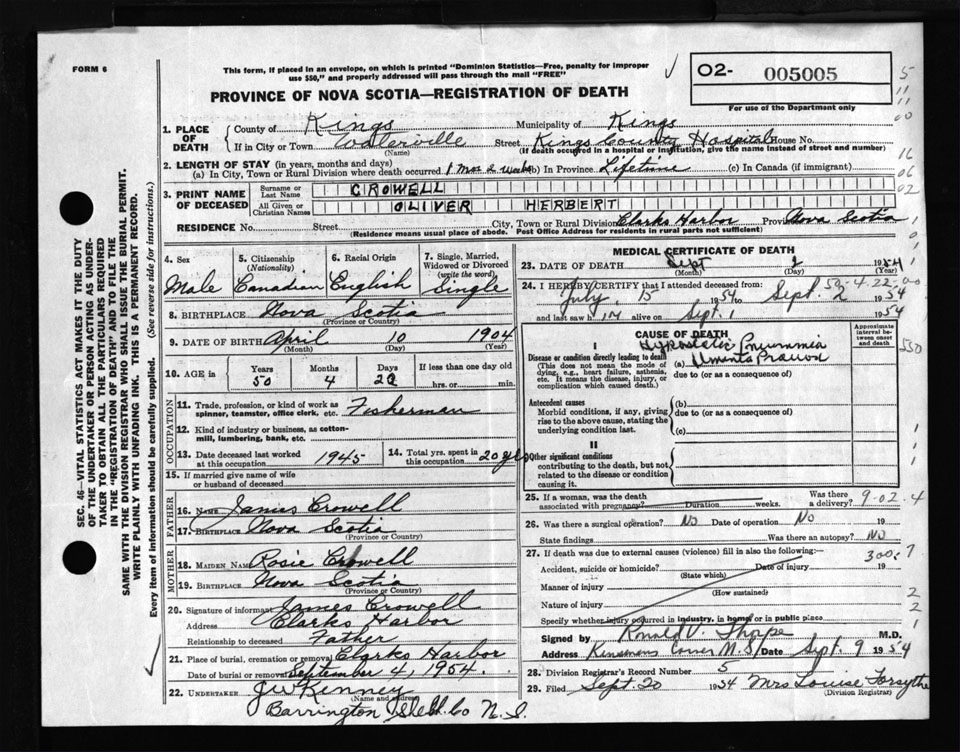 FORM 6
This form, if placed in an envelope, on which is printed "Dominion Statistics—Free, penalty for improper
use $50," and properly addressed will pass through the mail "FREE"
PROVINCE OF NOVA SCOTIA—REGISTRATION OF DEATH
O2- 005005
For use of the Department only
5
11
11
00
16
06
02
1. PLACE OF DEATH
County of Kings Municipality of Kings
If in City or Town Wolfville Street Kings County Hospital House No.
(Name) (If death occurred in a hospital or institution, give the name instead of street and number)
2. LENGTH OF STAY (in years, months and days)
(a) In City, Town or Rural Division where death occurred 1 Mos 2 weeks (b) In Province Lifetime (c) In Canada (if immigrant)
3. PRINT NAME OF DECEASED
Surname or Last Name CROWELL
All Given or Christian Names OLIVER HERBERT
RESIDENCE No. Street City, Town or Rural Division Clarks Harbor Province Nova Scotia
(Residence means usual place of abode. Post Office Address for residents in rural parts not sufficient)
4. Sex Male
5. Citizenship (Nationality) Canadian
6. Racial Origin English
7. Single, Married, Widowed or Divorced (write the word) Single
8. BIRTHPLACE Nova Scotia
(Province or Country)
9. DATE OF BIRTH April 10 1904
(Month) (Day) (Year)
10. AGE in Years 50 Months 4 Days 22 If less than one day old hrs. or min.
OCCUPATION
11. Trade, profession, or kind of work as
spinner, teamster, office clerk, etc. Fisherman
12. Kind of industry or business, as cotton-
mill, lumbering, bank, etc.
13. Date deceased last worked
at this occupation 1945
14. Total yrs. spent in
this occupation 20 yrs
15. If married give name of wife
or husband of deceased
FATHER
16. NAME James Crowell
17. BIRTHPLACE Nova Scotia
(Province or Country)
MOTHER
18. MAIDEN NAME Rosie Crowell
19. BIRTHPLACE Nova Scotia
(Province or Country)
20. Signature of informant James Crowell
Address Clarks Harbor
Relationship to deceased Father
21. Place of burial, cremation or removal Clarks Harbor
Date of burial or removal September 4, 1954.
22. UNDERTAKER J W Kinney
(Name and address)
Barrington Shelb. Co N. S.
MEDICAL CERTIFICATE OF DEATH
23. DATE OF DEATH Sept 2 1954
(Month) (Day) (Year)
24. I HEREBY CERTIFY that I attended deceased from:
July 15 1954 to Sept. 2 1954
and last saw h im alive on Sept. 1 1954
CAUSE OF DEATH
Approximate interval between onset and death
I
Hypostatic Pneumonia
Disease or condition directly leading to death (a)
(This does not mean the mode of dying, e.g., heart failure, asthenia, etc. It means the disease, injury, or complication which caused death.)
due to (or as a consequence of)
Antecedent causes
Morbid conditions, if any, giving rise to the above cause, stating the underlying condition last.
(b)
due to (or as a consequence of)
(c)
II
Other significant conditions
contributing to the death, but not related to the disease or condition causing it.
25. If a woman, was the death
associated with pregnancy? Duration weeks. Was there a delivery?
9-02.4
26. Was there a surgical operation? No Date of operation No 19
State findings Was there an autopsy? No
27. If death was due to external causes (violence) fill in also the following:—
300.7
Accident, suicide or homicide? Date of injury 19
(State which)
Manner of injury
(How sustained)
Nature of injury
Specify whether injury occurred in industry, in home, or in public place
Signed by Ronald V. Thorpe M.D.
Address Kinsmans Corner N.S. Date Sept. 9 1954
28. Division Registrar's Record Number 5
29. Filed Sept. 20 1954 Mrs Louise Forsythe
(Division Registrar)
SEC. 46—VITAL STATISTICS ACT MAKES IT THE DUTY
OF THE UNDERTAKER OR PERSON ACTING AS UNDER-
TAKER TO OBTAIN ALL THE PARTICULARS REQUIRED
IN THE "REGISTRATION OF DEATH" AND TO FILE THE
SAME WITH THE DIVISION REGISTRAR WHO SHALL ISSUE THE BURIAL PERMIT.
WRITE PLAINLY WITH UNFADING INK. THIS IS A PERMANENT RECORD.
Every item of information should be carefully supplied. (See reverse side for instructions.)